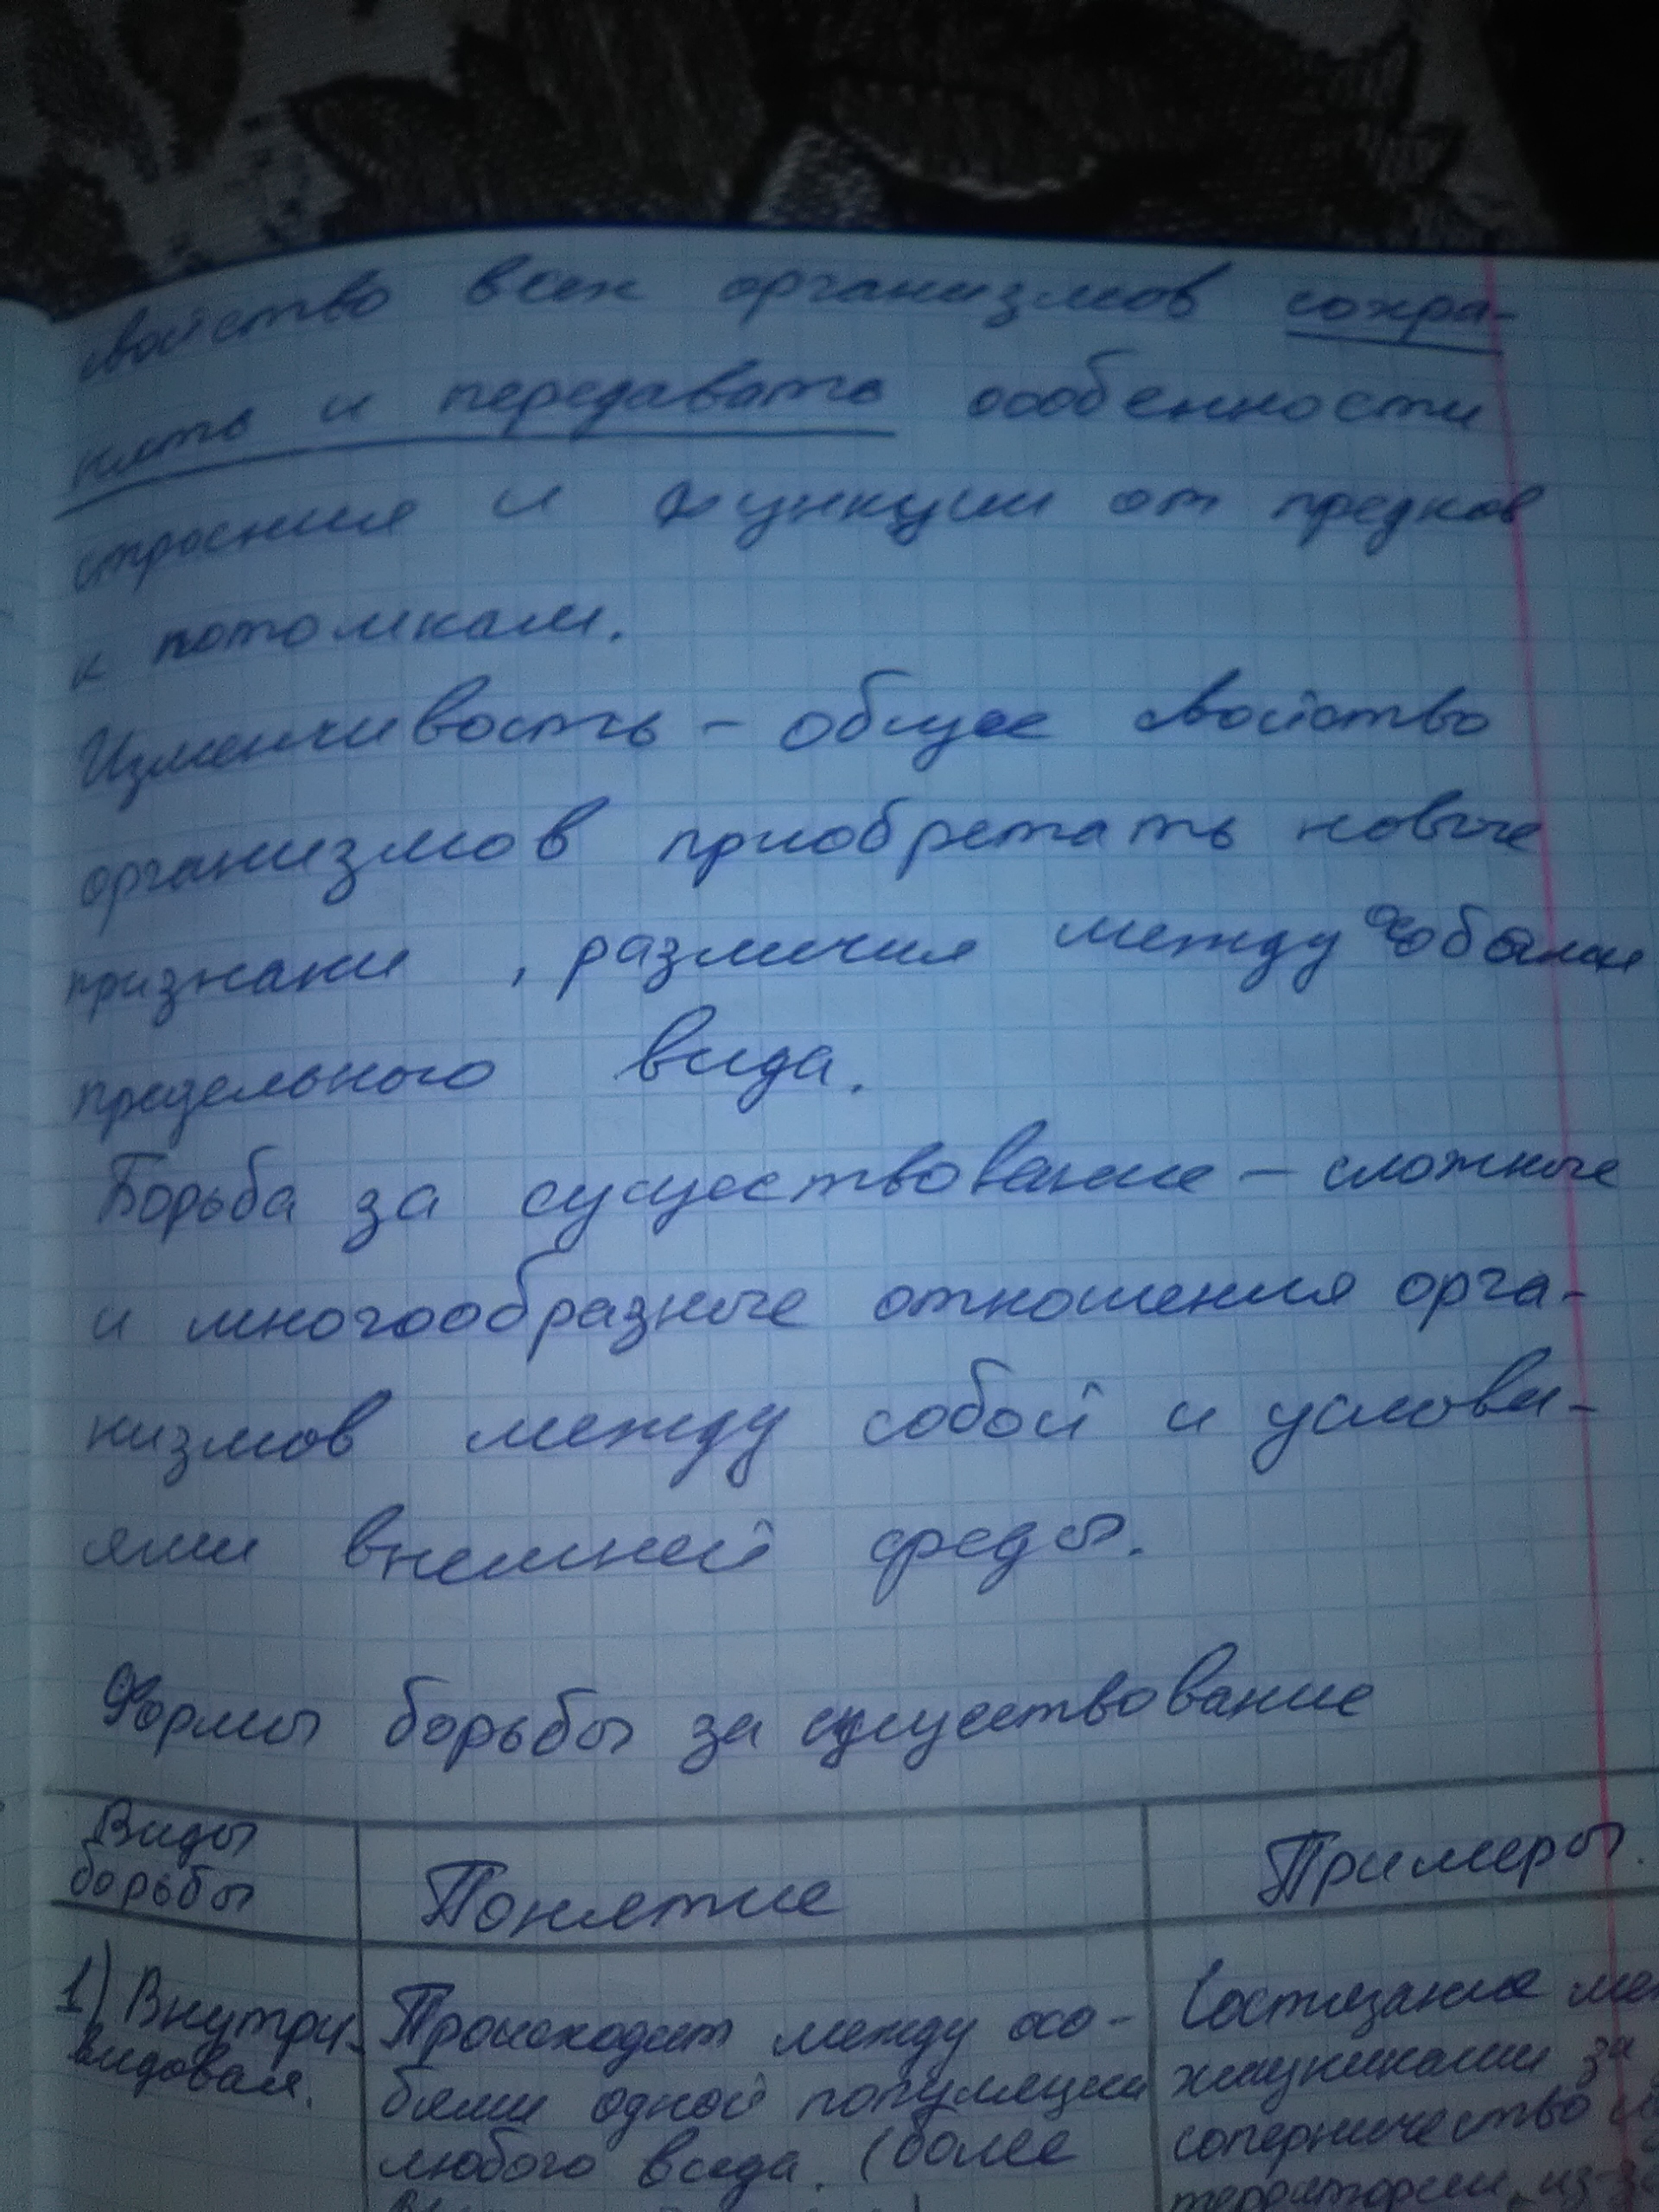 свойство всех организмов сохра-
нять и передавать особенности
строения и функции от предков
к потомкам.
Изменчивость - общее свойство
организмов приобретать новые
признаки , различия между особями
предельного вида.
Борьба за существование - сложные
и многообразные отношения орга-
низмов между собой и услови-
ями внешней среды.
Формы борьбы за существование
Виды
борьбы
Понятие
Примеры.
1) Внутри-
видовая.
Происходит между осо-
бями одной популяции
любого вида. (более
Состязание ме
хищниками за
соперничество
территории, из-за